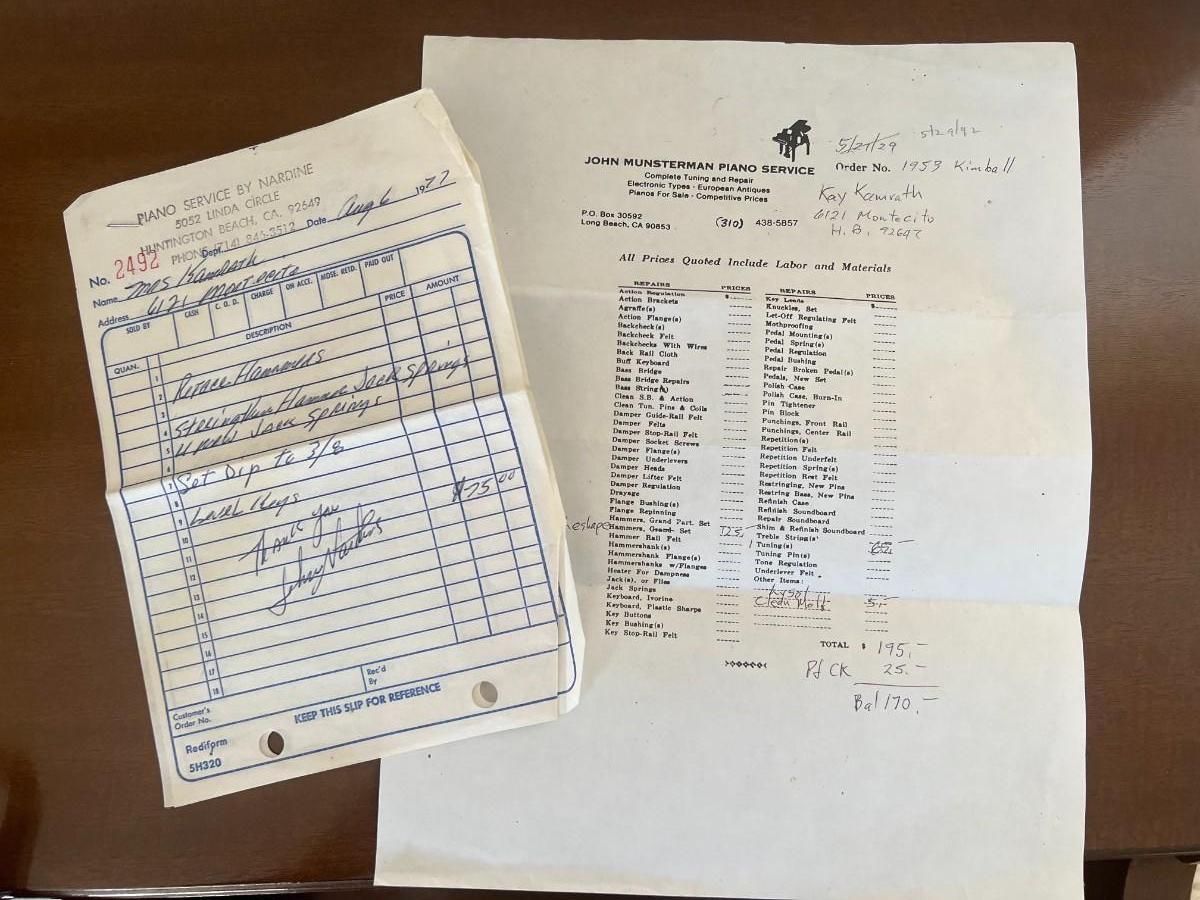 PIANO SERVICE BY NARDINE
5052 LINDA CIRCLE
HUNTINGTON BEACH, CA. 92649
PHONE (714) 846-3512
Dept.
Date Aug 6 1977
No. 2492
Name Mrs Kamrath
Address 6121 Montecito
SOLD BY CASH C. O. D. CHARGE ON ACCT. MDSE. RETD. PAID OUT
QUAN. DESCRIPTION PRICE AMOUNT
1
2 Hammers
3
4 Hammer Jack Springs
5 Jack Springs
6
7 Set Dip to 3/8
8 $75 00
9 Level Keys
10
11 Thank you
12
13
14
15
16
17
18
Customer's Order No.
Rec'd By
KEEP THIS SLIP FOR REFERENCE
Rediform
5H320
5/27/29 5/29/92
JOHN MUNSTERMAN PIANO SERVICE
Order No. 1953 Kimball
Complete Tuning and Repair
Electronic Types - European Antiques
Pianos For Sale - Competitive Prices
Kay Kamrath
6121 Montecito
H.B. 92647
P.O. Box 30592
Long Beach, CA 90853
(310) 438-5857
All Prices Quoted Include Labor and Materials
REPAIRS PRICES
Action Regulation $
Action Brackets
Agraffe(s)
Action Flange(s)
Backcheck(s)
Backcheck Felt
Backchecks With Wires
Back Rail Cloth
Buff Keyboard
Bass Bridge
Bass Bridge Repairs
Bass String(s)
Clean S.B. & Action
Clean Tun. Pins & Coils
Damper Guide-Rail Felt
Damper Felts
Damper Stop-Rail Felt
Damper Socket Screws
Damper Flange(s)
Damper Underlevers
Damper Heads
Damper Lifter Felt
Damper Regulation
Drayage
Flange Bushing(s)
Flange Repinning
Hammers, Grand Part. Set
Reshape Hammers, Grand Set 125.
Hammer Rail Felt
Hammershank(s)
Hammershank Flange(s)
Hammershanks w/Flanges
Heater For Dampness
Jack(s), or Flies
Jack Springs
Keyboard, Ivorine
Keyboard, Plastic Sharps
Key Buttons
Key Bushing(s)
Key Stop-Rail Felt
REPAIRS PRICES
Key Leads $
Knuckles, Set
Let-Off Regulating Felt
Mothproofing
Pedal Mounting(s)
Pedal Spring(s)
Pedal Regulation
Pedal Bushing
Repair Broken Pedal(s)
Pedals, New Set
Polish Case
Polish Case, Burn-In
Pin Tightener
Pin Block
Punchings, Front Rail
Punchings, Center Rail
Repetition(s)
Repetition Felt
Repetition Underfelt
Repetition Spring(s)
Repetition Rest Felt
Restringing, New Pins
Restring Bass, New Pins
Refinish Case
Refinish Soundboard
Repair Soundboard
Shim & Refinish Soundboard
Treble String(s)
1 Tuning(s) 65.-
Tuning Pin(s)
Tone Regulation
Underlever Felt
Other Items:
Clean 5.-
TOTAL $ 195.-
Pd CK 25.-
Bal 170.-